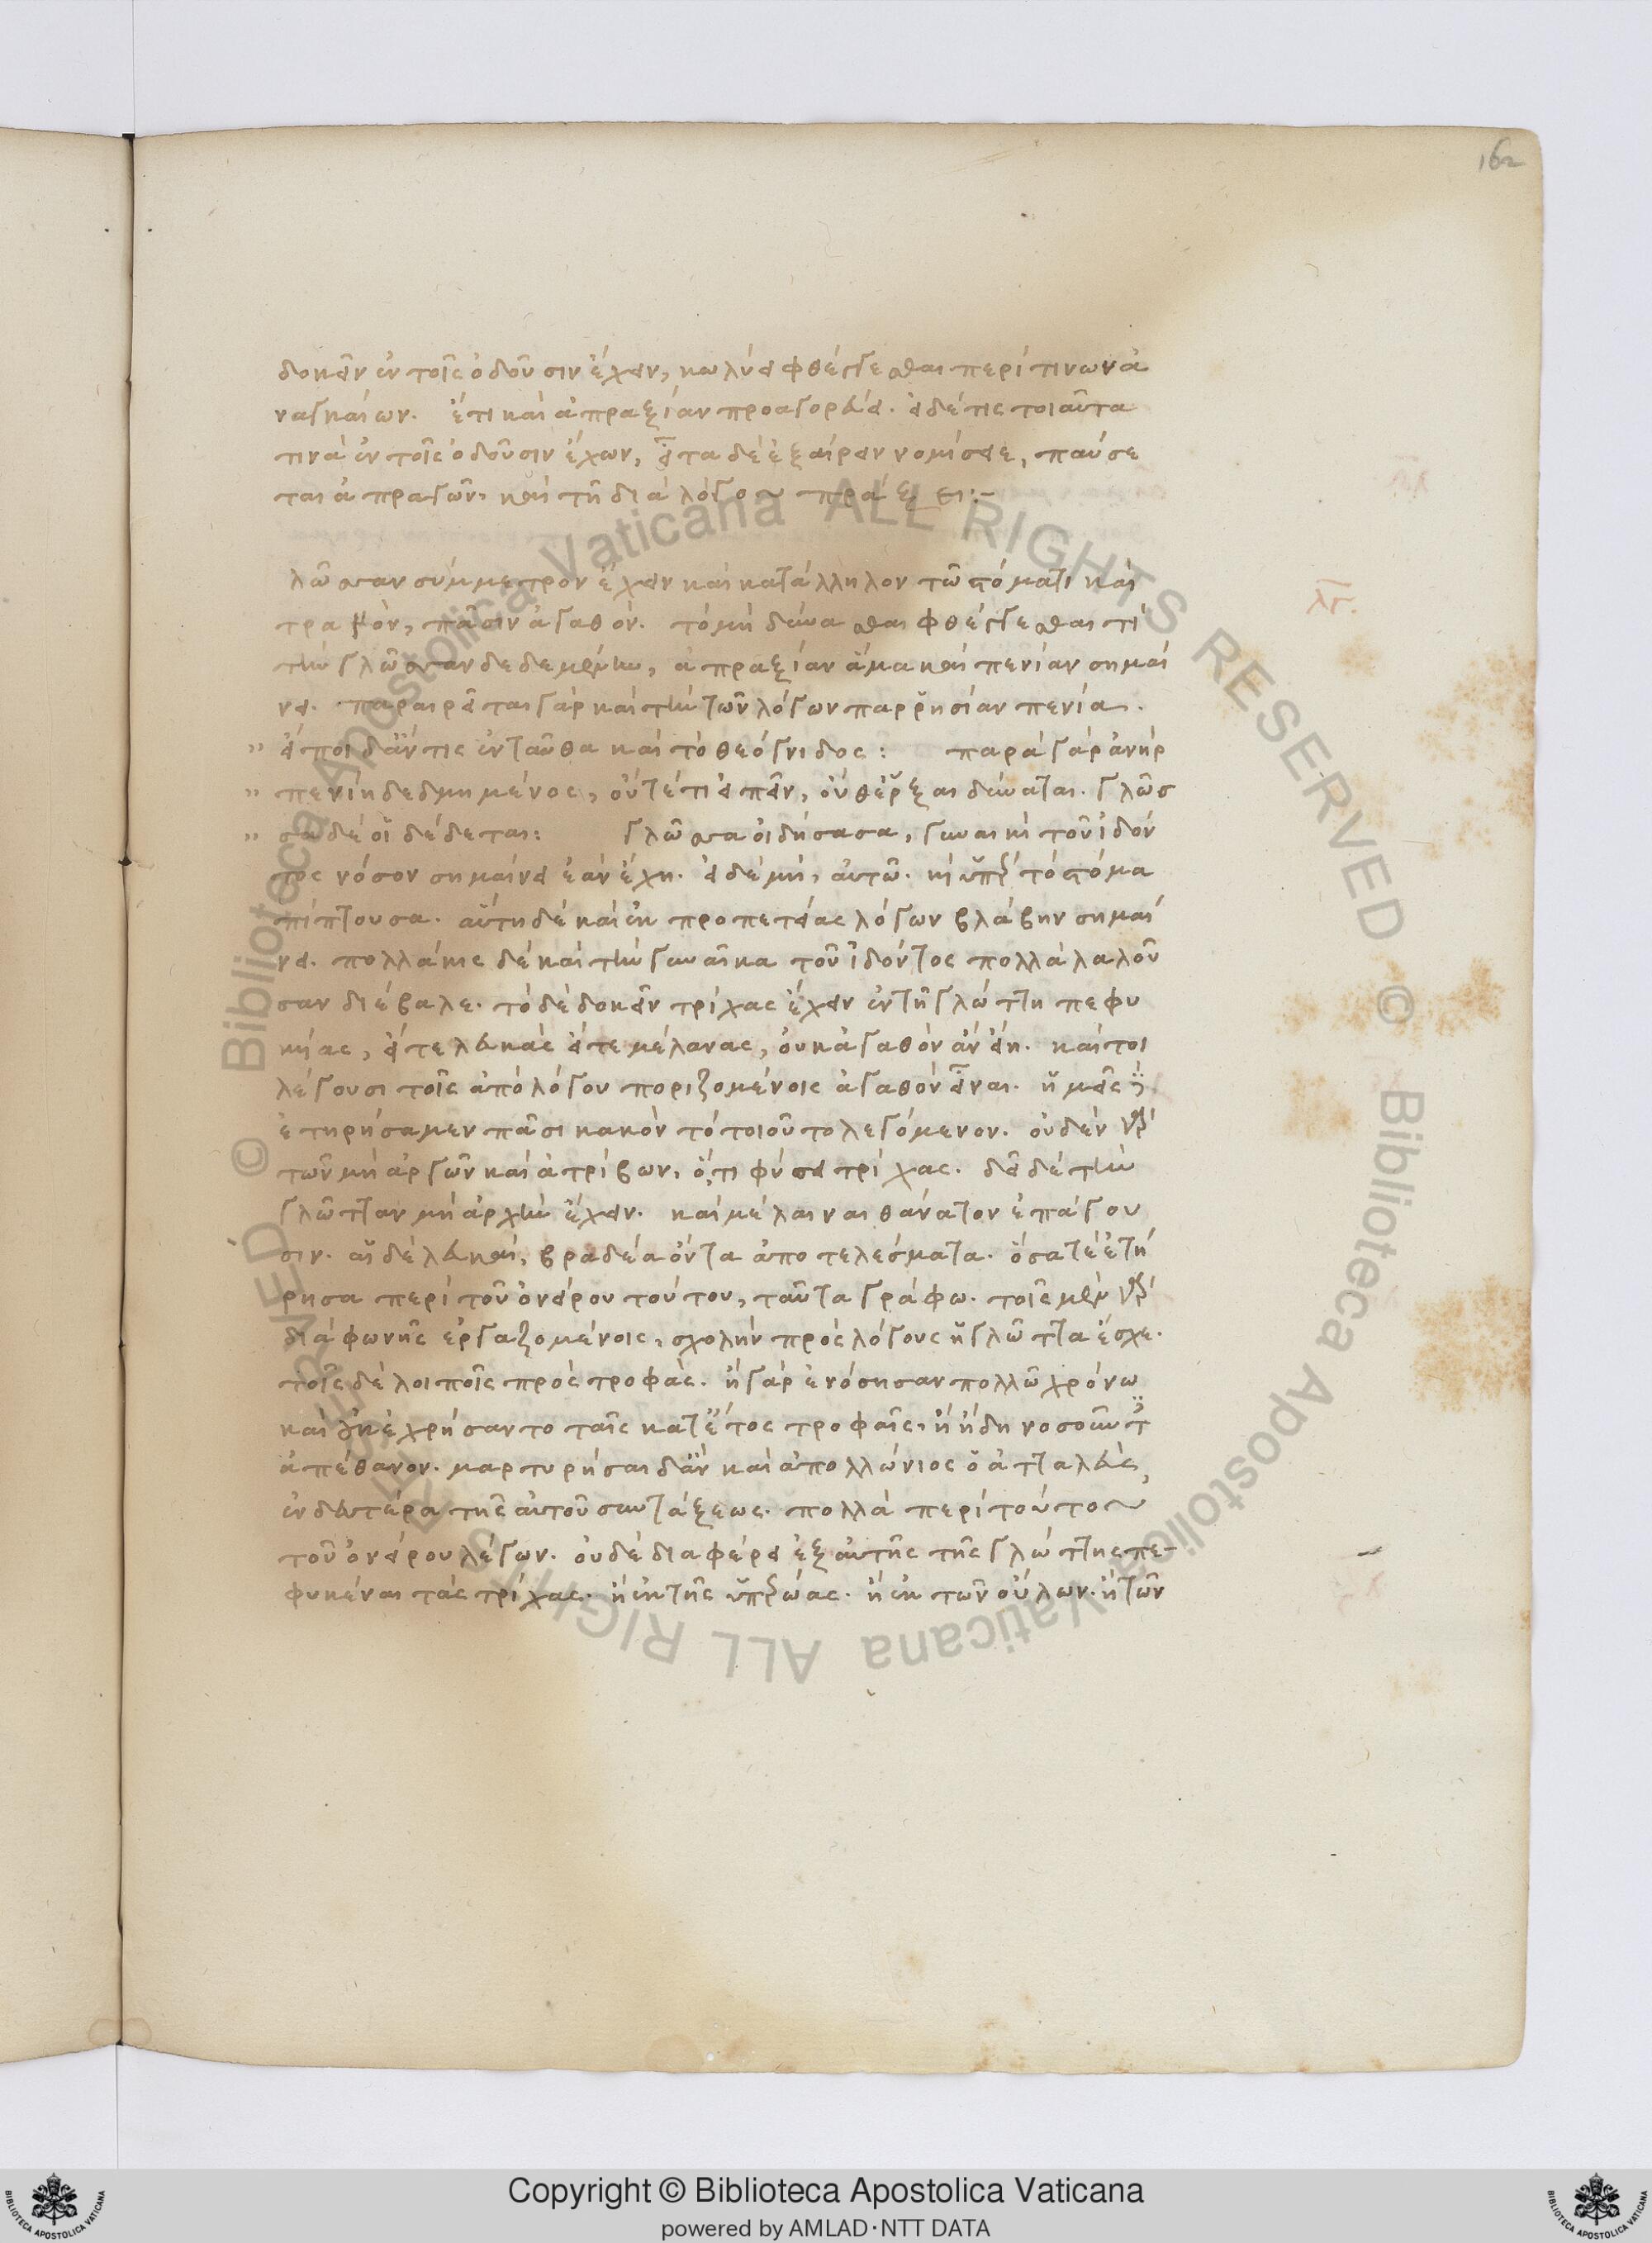 162
δοκεῖν ἐν τοῖς ὀδοῦσιν ἔχειν, κωλύει φθέγγεσθαι περί τινων ἀ
ναγκαίων. ἔτι καὶ ἀπραξίαν προαγορεύει. εἰ δέ τις τοιαῦτα
τινὰ ἐν τοῖς ὀδοῦσιν ἔχων, εἶτα δὲ ἐξαίρειν νομίσειε, παύσε
ται ἀπραγῶν. καὶ τῇ διὰ λόγου πράξει:–
λῶσσαν σύμμετρον ἔχειν καὶ κατάλληλον τῶ στόματι καὶ
τρανὸν, πᾶσιν ἀγαθόν. τὸ μὴ δύνασθαι φθέγγεσθαι τι
τὴν γλῶσσαν δεδεμένην, ἀπραξίαν ἅμα καὶ πενίαν σημαί
νει. παραιρεῖται γὰρ καὶ τὴν τῶν λόγων παρρησίαν πενία.
" εἴποι δἄν τις ἐνταῦθα καὶ τὸ θεόγνιδος: παρὰ γὰρ ἀνὴρ
" πενίη δεδμημένος, οὔτέ τι εἰπεῖν, οὐθέρξαι δύναται. γλῶσ
" σα δέ οἱ δέδεται: γλῶσσα οἰδήσασα, γυναικὶ τοῦ ἰδόν
τος νόσον σημαίνει ἐὰν ἔχη. εἰ δὲ μὴ, αὐτῶ. κἡ ὑπὲρ τὸ στόμα
πίπτουσα. αὕτη δὲ καὶ ἐκ προπετείας λόγων βλάβην σημαί
νει. πολλάκις δὲ καὶ τὴν γυναῖκα τοῦ ἰδόντος πολλὰ λαλοῦ
σαν διέβαλε. τὸ δὲ δοκεῖν τρίχας ἔχειν ἐν τῇ γλώττη πεφυ
κυίας, εἴτε λευκὰς εἴτε μέλανας, οὐκ ἀγαθὸν ἂν εἴη. καίτοι
λέγουσι τοῖς ἀπὸ λόγου ποριζομένοις ἀγαθὸν εἶναι. ἡμεῖς δὲ
ἐτηρήσαμεν πᾶσι κακὸν τὸ τοιοῦτο λεγόμενον. οὐδὲν γὰρ
τῶν μὴ ἀργῶν καὶ ἀτρίβων, ὅ,τι φύσει τρίχας. δεῖ δὲ τὴν
γλῶτταν μὴ ἀρχὴν ἔχειν. καὶ μέλαιναι θάνατον ἐπάγου
σιν. αἱ δὲ λευκαὶ, βραδέα ὄντα ἀποτελέσματα. ὅσα τέ ἐτή
ρησα περὶ τοῦ ὀνείρου τούτου, ταῦτα γράφω. τοῖς μὲν γὰρ
διὰ φωνῆς ἐργαζομένοις, σχολὴν πρὸς λόγους ἡ γλῶττα ἔσχε.
τοῖς δὲ λοιποῖς πρὸς τροφάς. ἢ γὰρ ἐνόσησαν πολλῶ χρόνω
καὶ οὐκ ἐχρήσαντο ταῖς κατἔτος τροφαῖς, ἢ ἤδη νοσοῦντες
ἀπέθανον. μαρτυρήσαι δἂν καὶ ἀπολλώνιος ὁ ἀτταλεὺς,
ἐν δευτέρα τῆς αὐτοῦ συντάξεως. πολλὰ περὶ τούτου
τοῦ ὀνείρου λέγων. οὐδὲ διαφέρει ἐξ αὐτῆς τῆς γλώττης πε–
φυκέναι τὰς τρίχας. ἢ ἐκ τῆς ὑπερώας. ἢ ἐκ τῶν οὔλων. ἢ τῶν
© Biblioteca Apostolica Vaticana ALL RIGHTS RESERVED © Biblioteca Apostolica Vaticana ALL RIGHTS RESERVED
Copyright © Biblioteca Apostolica Vaticana
powered by AMLAD·NTT DATA
BIBLIOTECA APOSTOLICA VATICANA
BIBLIOTECA APOSTOLICA VATICANA